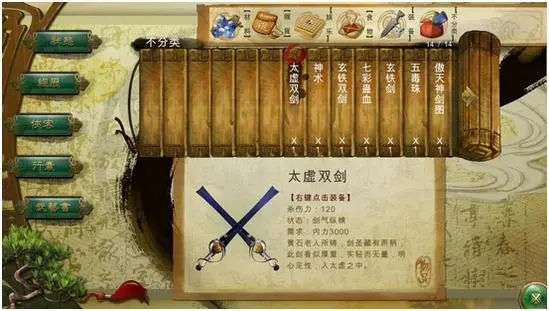 材料
雜貨
娱乐
食物
装备
不分类
14 / 14
不分类
太虚双剑 X 1
神术 X 1
玄铁双剑 X 1
七彩蛊血 X 1
玄铁剑 X 1
五毒珠 X 1
傲天神剑图 X 1
狀態
經歷
俠客
行囊
武藝書
太虚双剑
【右键点击装备】
杀伤力：120
状态：剑气纵横
需求：内力3000
黄石老人所铸，剑圣藏有两柄，
此剑看似厚重，实轻而无量，明
心见性，入太虚之中。
物品